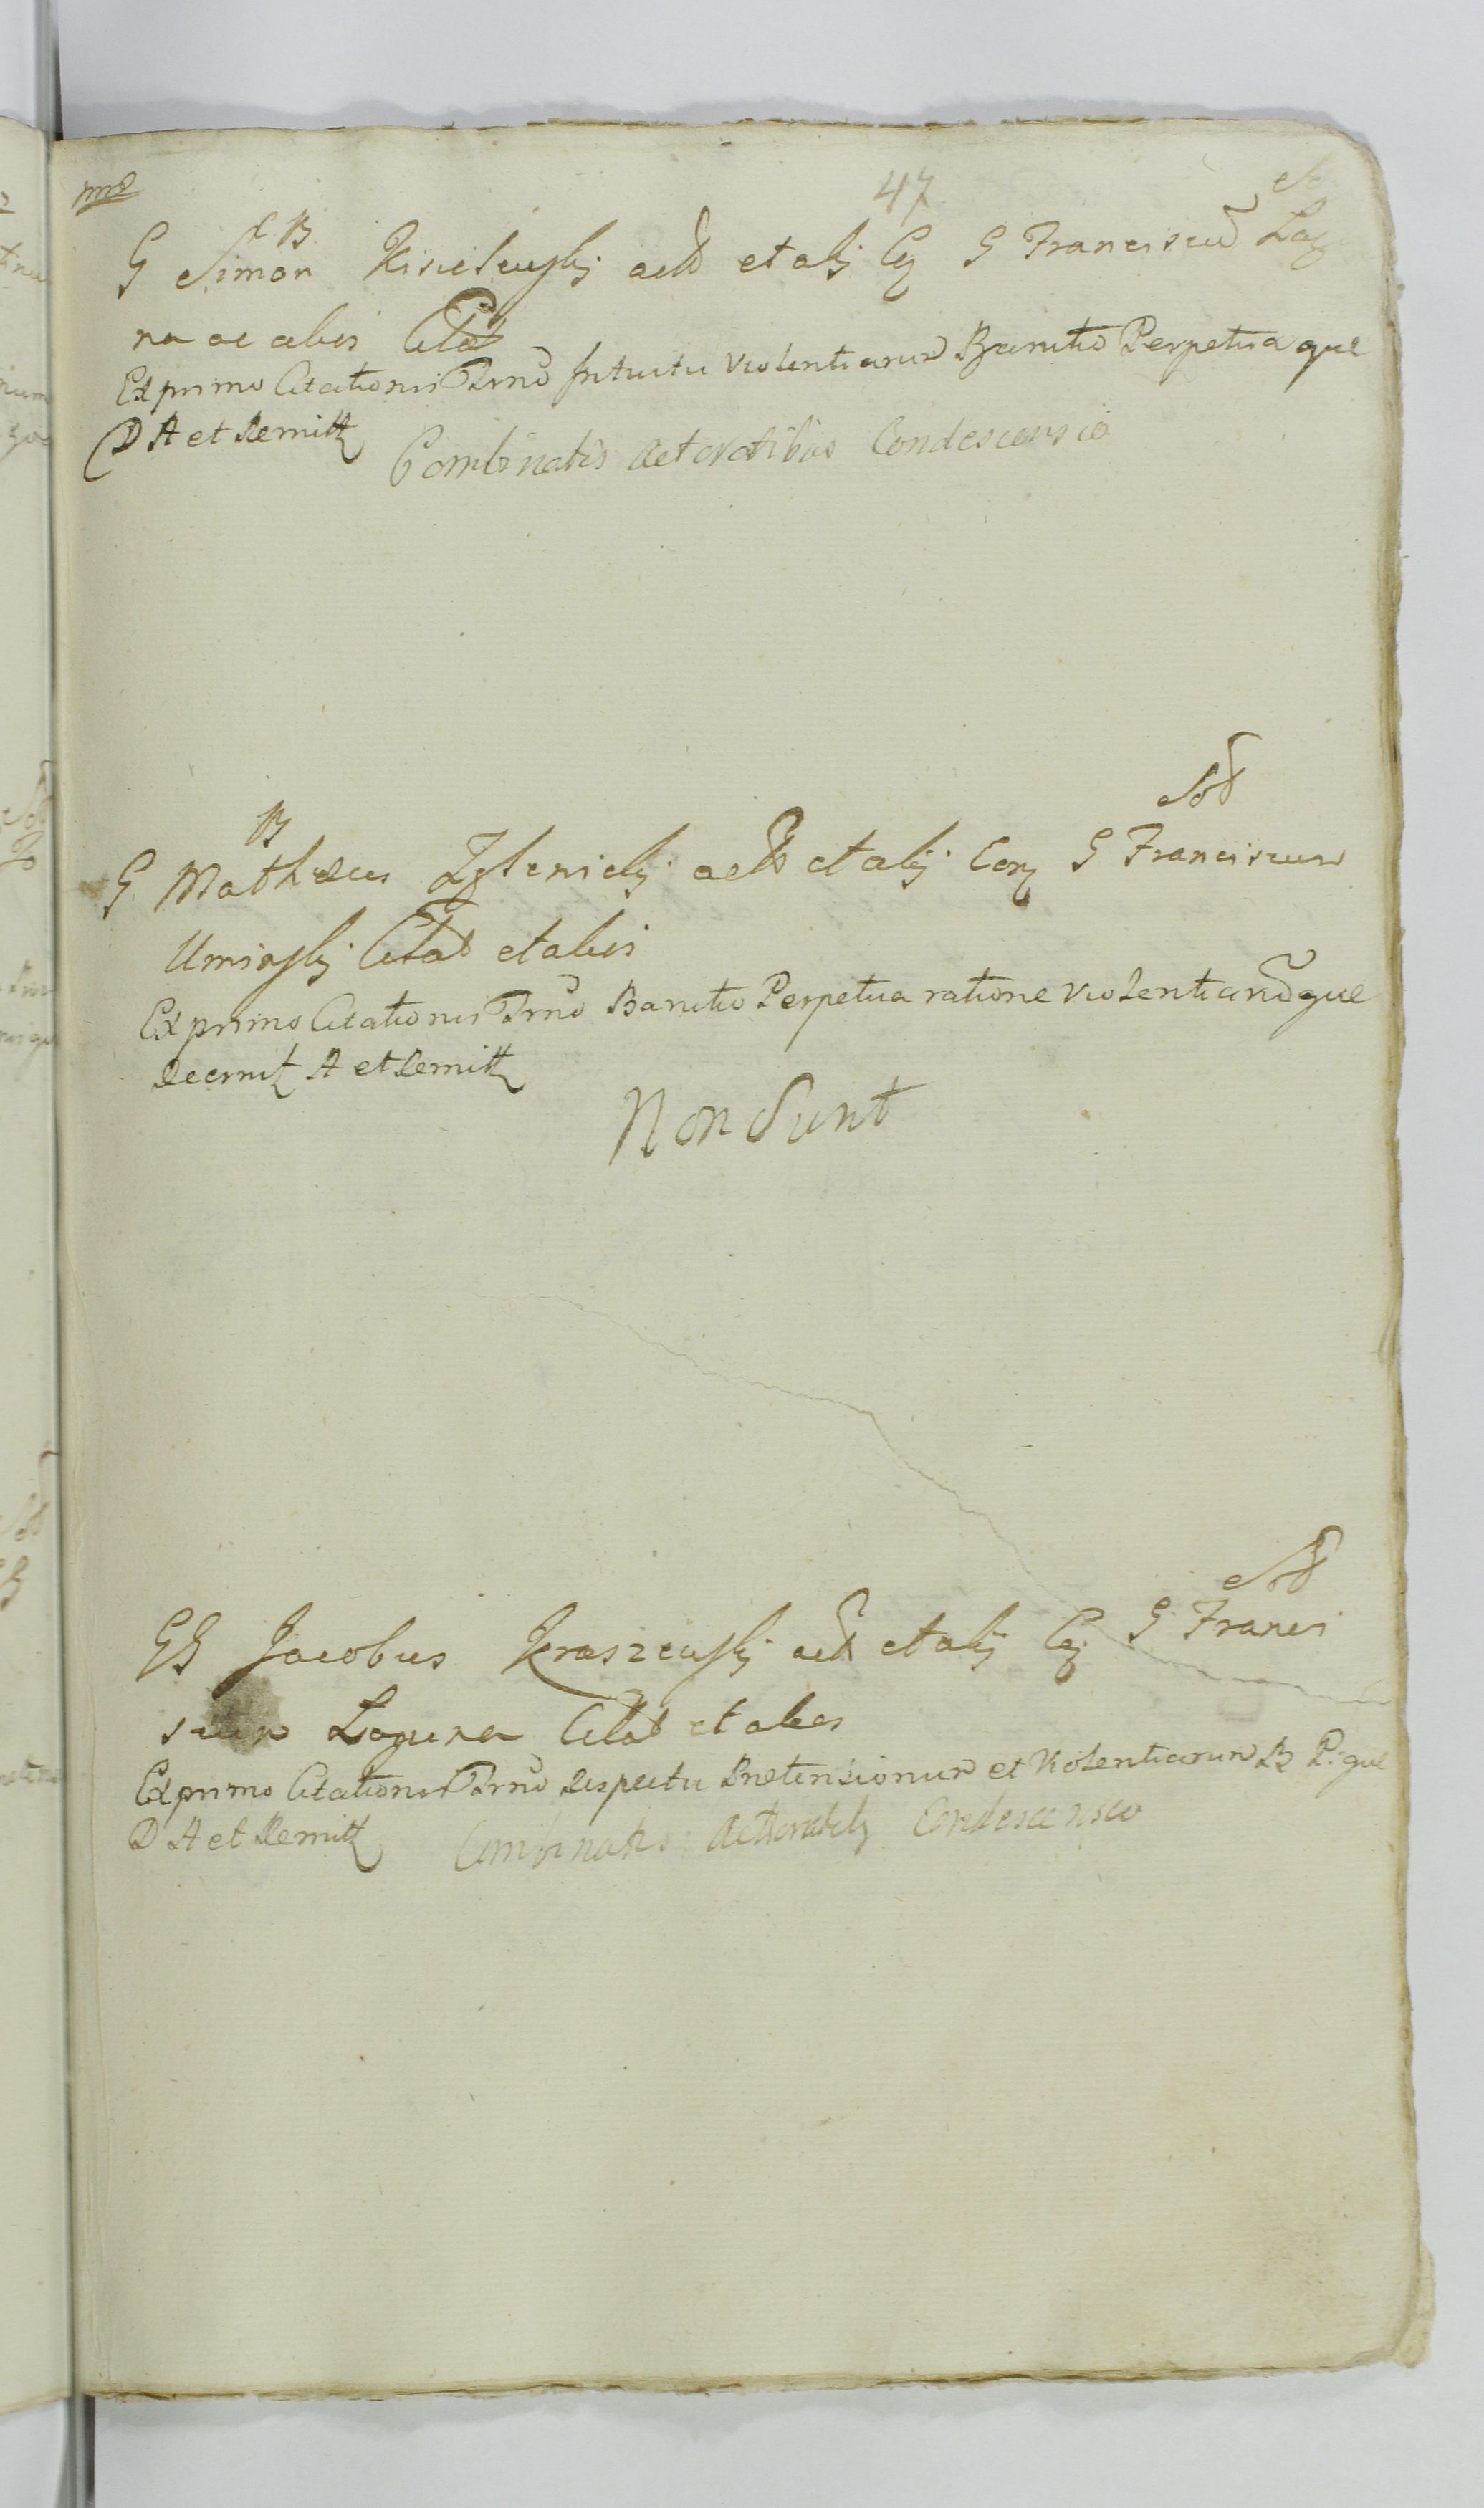 47
B
G Simon Kisielewskj actŕ et alij Cq G Franciscū Lag
na ac alios Citat
Ex primo Citationis Trnō Intuitu violentiarum Banitio Perpetua que
D A et Remitt Combinatis Actoratibus Condescensio
B Nob
G Mathæus Zglenickj actŕ et alij Con G Franciscum
Uminskj Citat et alios
Ex primo Citationis Trnō Banitio Perpetua ratione violentiarū que
decernit A et Remitt
Non Sunt
Nob
GG Jacobus Kraszewskj actŕ et alij Cq G Franci
scum Laguna Citat et alios
Ex primo Citationis Trnō respectu Prætensionum et Violentiarum B P: que
D A et Remitt Combinatis Actoratibq Condescensio